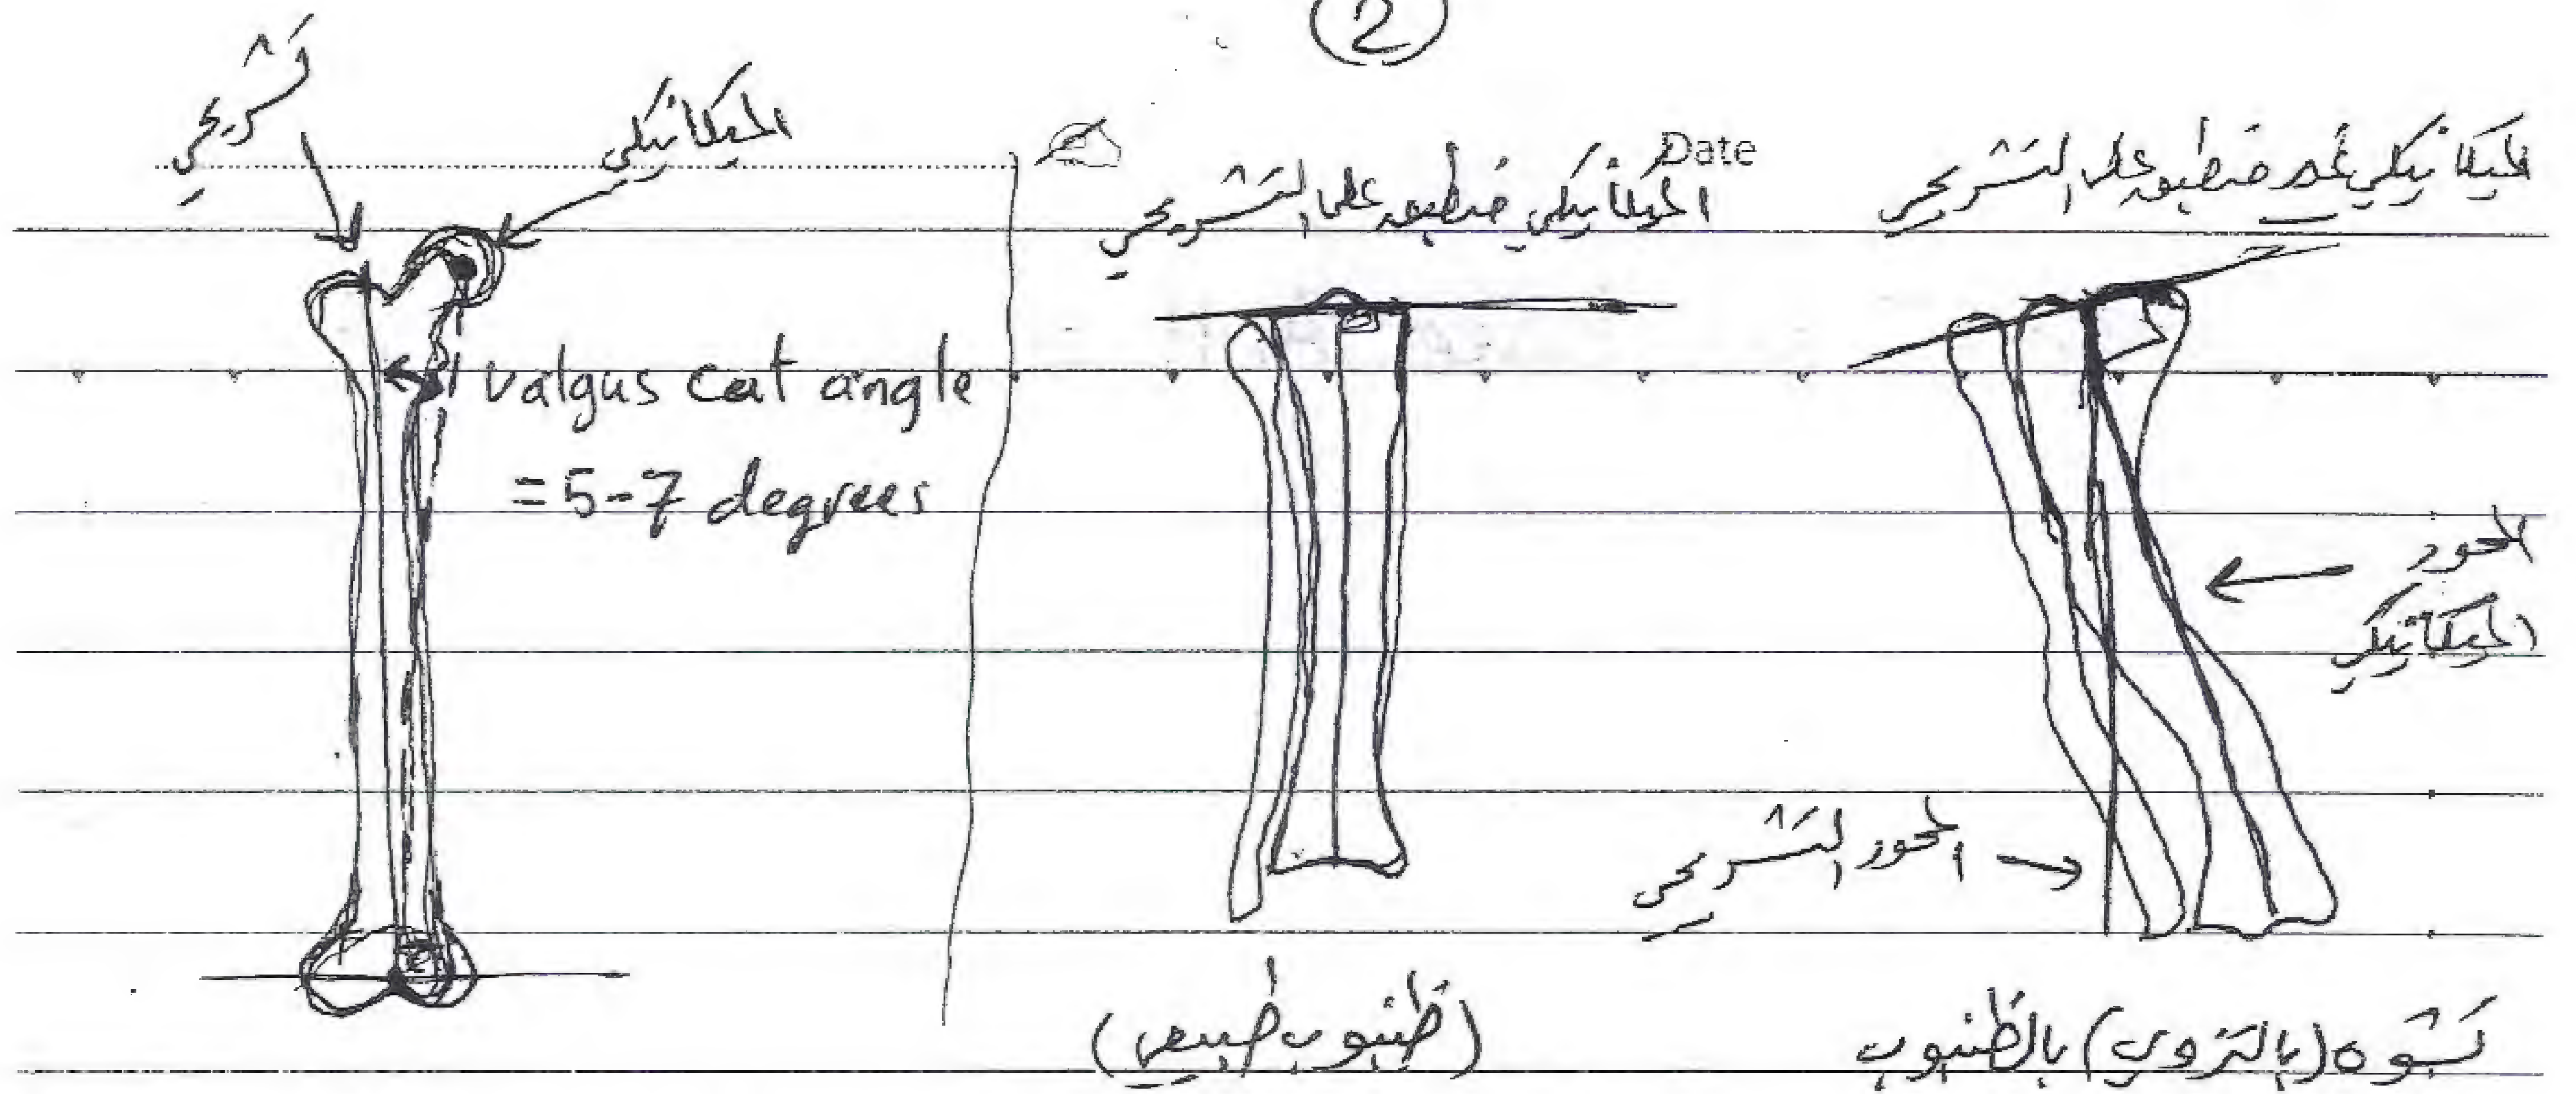 2
Date
تشريحي
الميكانيكي
valgus cut angle
= 5-7 degrees
الميكانيكي منطبق على التشريحي
(ظنبوب طبيعي)
الميكانيكي غير منطبق على التشريحي
المحور
الميكانيكي
المحور التشريحي
تشوه (بالتزوي) بالظنبوب